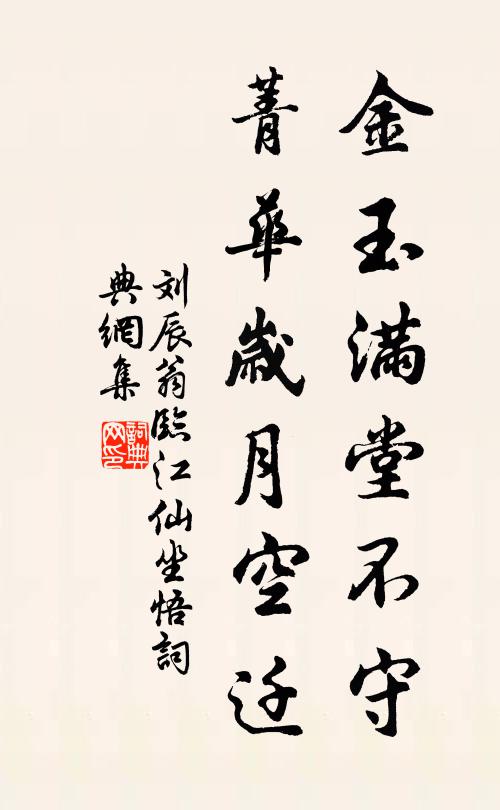 金玉滿堂不守
菁華歲月空迁
刘辰翁臨江仙坐悟詞
典網集
詞典
网印